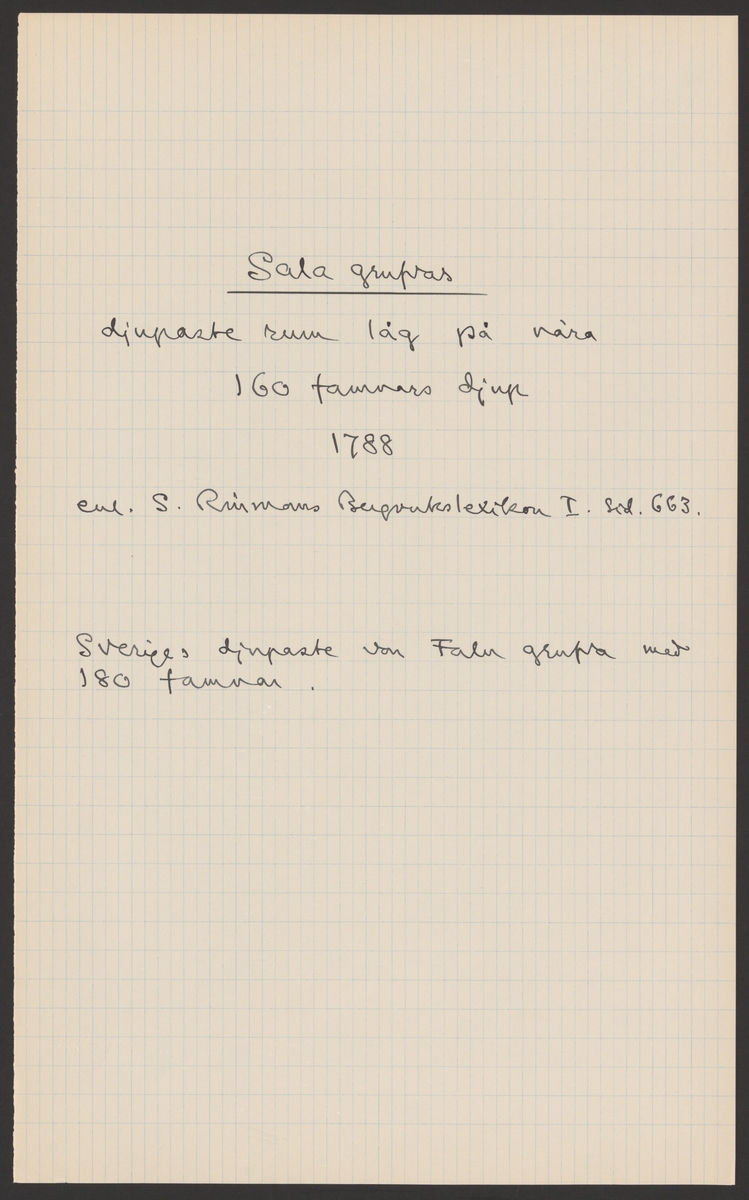 Sala grufvas
djupaste rum låg på nära
160 famnars djup
1788
enl. S. Rinmans Bergverkslexikon I. Sid. 663.
Sveriges djupaste var Falu grufva med
180 famnar.